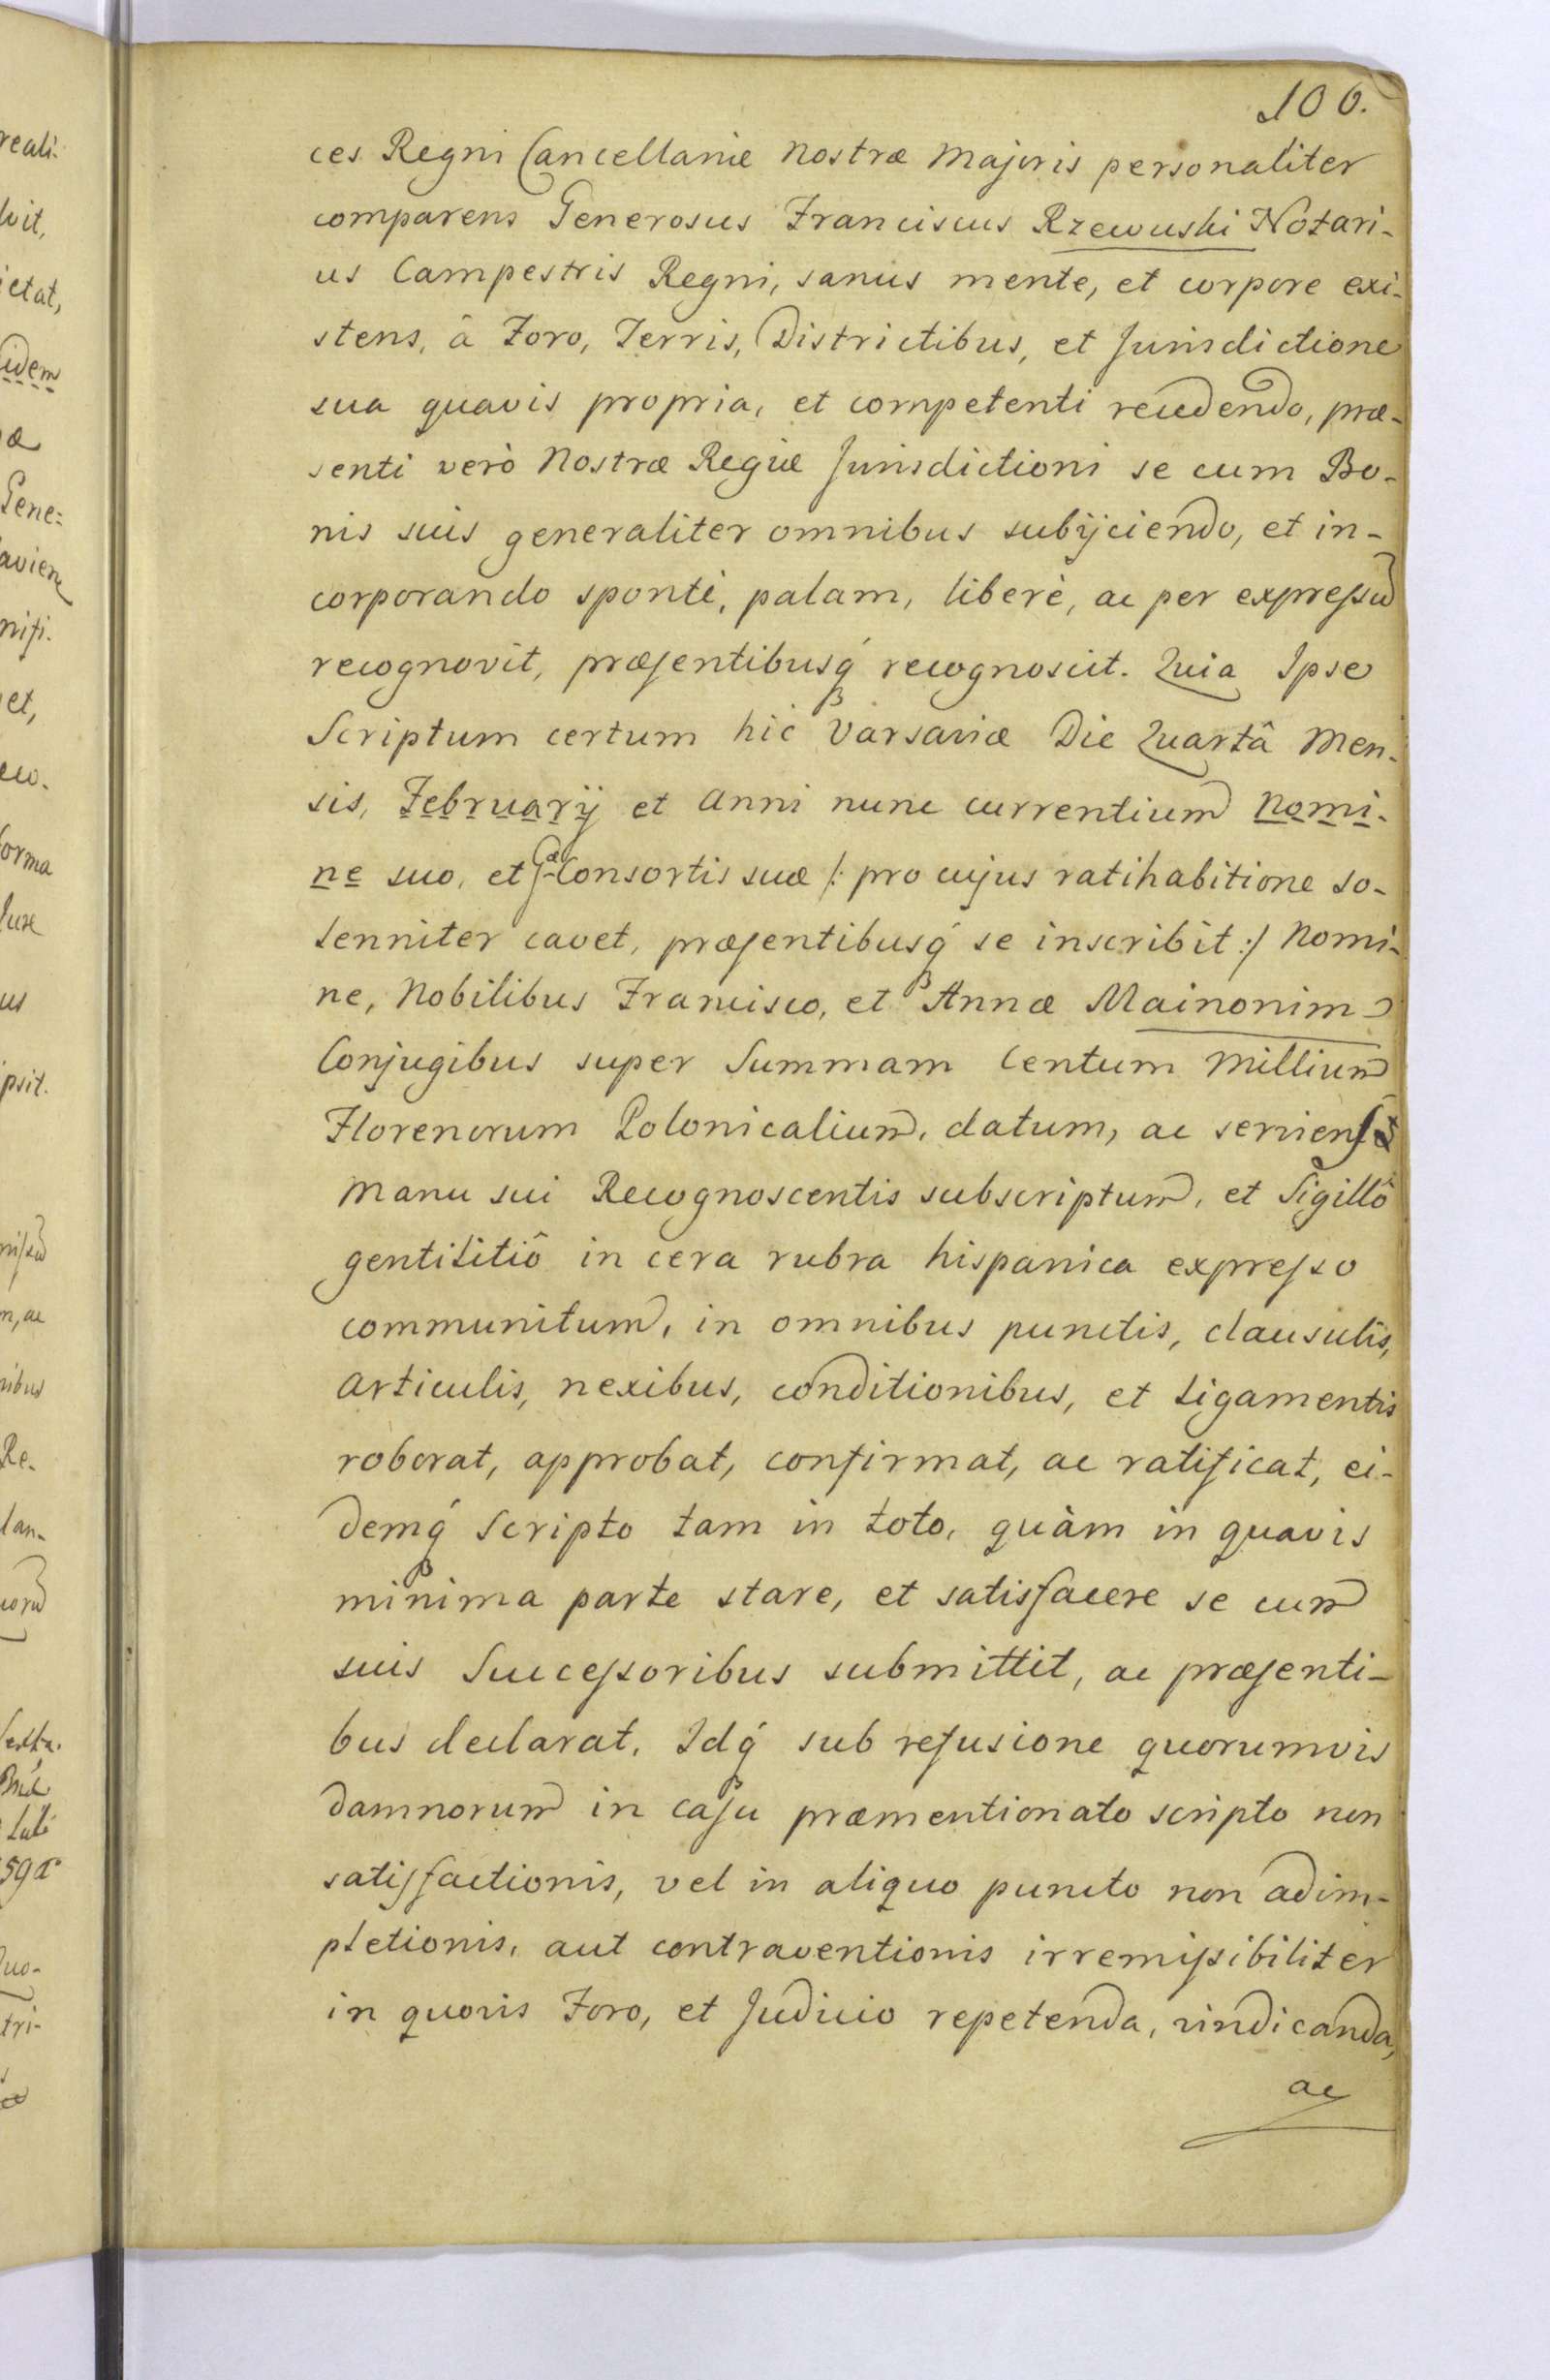 106.
ces Regni Cancellariæ Nostræ Majoris personaliter
comparens Generosus Franciscus Rzewuski Notari-
us Campestris Regni, sanus mente, et corpore exi-
stens, â Foro, Terris, Districtibus, et Jurisdictione
sua quavis propria, et competenti recedendo, præ-
senti verò Nostræ Regiæ Jurisdictioni se cum Bo-
nis suis generaliter omnibus subijciendo, et in-
corporando spontè, palam, liberè, ac per expressũ
recognovit, præsentibusq́ recognoscit. Quia Ipse
Scriptum certum hic Varsaviæ Die Quartâ Men-
sis, Februarij et Anni nunc currentium nomi-
ne suo, et Gæ Consortis suæ /: pro cujus ratihabitione so-
lenniter cavet, præsentibusq́ se inscribit :/ Nomi-
ne, Nobilibus Francisco, et Annæ Mainonim
Conjugibus super Summam Centum Millium
Florenorum Polonicalium, datum, ac serviens
Manu sui Recognoscentis subscriptum, et Sigillô
gentilitiô in cera rubra hispanica expresso
communitum, in omnibus punctis, clausulis,
Articulis, nexibus, conditionibus, et Ligamentis
roborat, approbat, confirmat, ac ratificat, ei-
demq́ Scripto tam in toto, quàm in quavis
minima parte stare, et satisfacere se cum
suis Successoribus submittit, ac præsenti-
bus declarat. Idq́ sub refusione quorumvis
damnorum in casu præmentionato scripto non
satisfactionis, vel in aliquo puncto non adim-
pletionis, aut contraventionis irremissibiliter
in quovis Foro, et Judicio repetenda, vindicanda,
ac
reali-
ictat,
idem
Gene-
nisi.
et,
forma
us
psit.
m, ac
nibus
Re-
Quo-
tri-